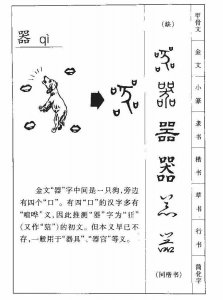 器 qì
金文“器”字中间是一只狗，旁边
有四个“口”。有四“口”的汉字多有
“喧哗”义，因此推测“器”字为“狂”
（又作“𤝵”）的初文。但本义早已不
存，一般用于“器具”、“器官”等义。
（缺）
器
器
（同楷书）
甲骨文
金文
小篆
隶书
楷书
草书
行书
简化字